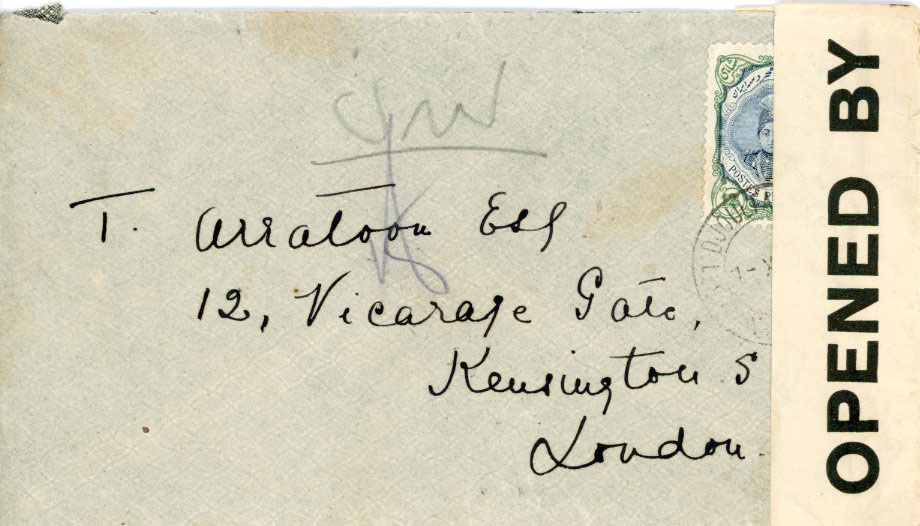 T. Arratoon Esq
12, Vicarage Gate,
Kensington S
London.
OPENED BY
POSTES